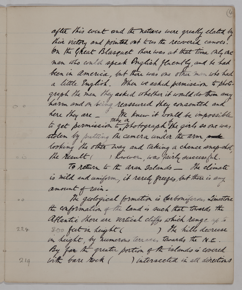 after this event and the natives were greatly elated by
their victory and pointed out to us the recovered canoes
On the Great Blasquet there was at that time only one
man who could speak English fluently, and he had
been in America, but there was one other man who had
a little English. When we asked permission to photo-
graph the men they asked whether it would do them any
harm and on being reassured they consented and
here they are — We knew it would be impossible
to get permission to photograph the girls so one was
taken by putting the camera under the arm and
looking the other way and taking a chance snapshot,
the result ( ) however, was fairly successful.
To return to the area outside — The climate
is mild and uniform, it rarely freezes but there is any
amount of rain.
The geological formation is Carboniferous limestone
the conformation of the land is such that towards the
Atlantic there are vertical cliffs which range up to
200 feet in height ( ) The hills decrease
in height, by numerous terraces towards the N.E.
By far the greater portion of the islands is covered
with bare rock ( ) intersected in all directions